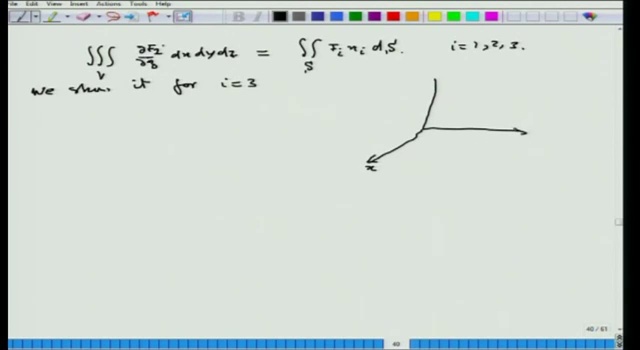 View Insert Actions Tools Help
∭_V ∂F_i/∂x_i dx dy dz = ∬_S F_i n_i dS. i=1,2,3.
we show it for i=3
x
40 / 61
40